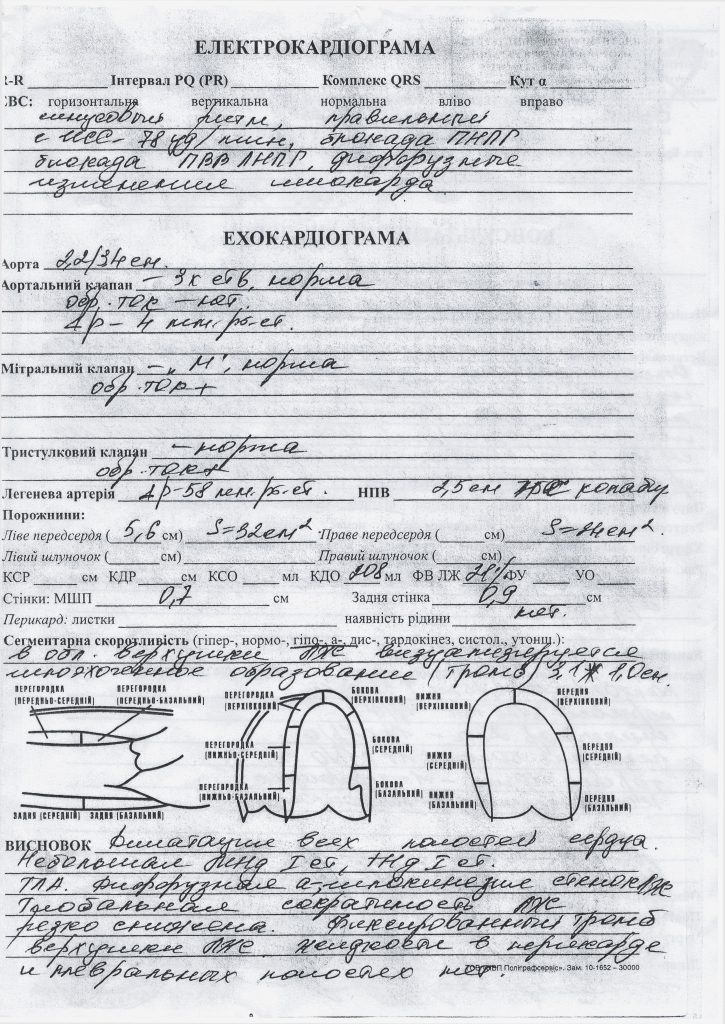 ЕЛЕКТРОКАРДІОГРАМА
R-R Інтервал PQ (PR) Комплекс QRS Кут α
ЕВС: горизонтальна вертикальна нормальна вліво вправо
синусовый ритм, правильный
с ЧСС- 78 уд/мин, блокада ПНПГ
блокада ПВВ ЛНПГ, диффузные
изменения миокарда.
ЕХОКАРДІОГРАМА
Аорта 2,2/3,4 см.
Аортальний клапан – 3х ств, норма
обр. ток – нет.
Δр – 4 мм.рт.ст.
Мітральний клапан – „М", норма
обр. ток +
Тристулковий клапан – норма
обр. ток +
Легенева артерія Δр-58 мм.рт.ст. НПВ 2,5см колабу
Порожнини:
Ліве передсердя ( 5,6 см) S=32см² Праве передсердя ( см) S=24см².
Лівий шлуночок ( см) Правий шлуночок ( см)
КСР см КДР см КСО мл КДО 208 мл ФВ ЛЖ ФУ УО
Стінки: МШП 0,7 см Задня стінка 0,9 см
Перикард: листки наявність рідини нет.
Сегментарна скоротливість (гіпер-, нормо-, гіпо-, а-, дис-, тардокінез, систол., утонщ.):
в обл. верхушки ЛЖ визуализируется
образование (тромб) 3,1 * 1,0см.
ПЕРЕГОРОДКА (ПЕРЕДНЬО-СЕРЕДНІЙ)
ПЕРЕГОРОДКА (ПЕРЕДНЬО-БАЗАЛЬНИЙ)
ЗАДНЯ (СЕРЕДНІЙ) ЗАДНЯ (БАЗАЛЬНИЙ)
ПЕРЕГОРОДКА (ВЕРХІВКОВИЙ)
ПЕРЕГОРОДКА (НИЖНЬО-СЕРЕДНІЙ)
ПЕРЕГОРОДКА (НИЖНЬО-БАЗАЛЬНИЙ)
БОКОВА (ВЕРХІВКОВИЙ)
БОКОВА (СЕРЕДНІЙ)
БОКОВА (БАЗАЛЬНИЙ)
НИЖНЯ (ВЕРХІВКОВИЙ)
НИЖНЯ (СЕРЕДНІЙ)
НИЖНЯ (БАЗАЛЬНИЙ)
ПЕРЕДНЯ (ВЕРХІВКОВИЙ)
ПЕРЕДНЯ (СЕРЕДНІЙ)
ПЕРЕДНЯ (БАЗАЛЬНИЙ)
ВИСНОВОК Дилатация всех полостей сердца.
Небольшая МНд I ст, ТНд I ст.
ТЛА. Диффузная а-гипокинезия стенок ЛЖ
Глобальная сократимость ЛЖ
резко снижена. Фиксированный тромб
верхушки ЛЖ. Жидкости в перикарде
и плевральных полостях нет.
Поліграфсервіс». Зам. 10-1652 – 30000